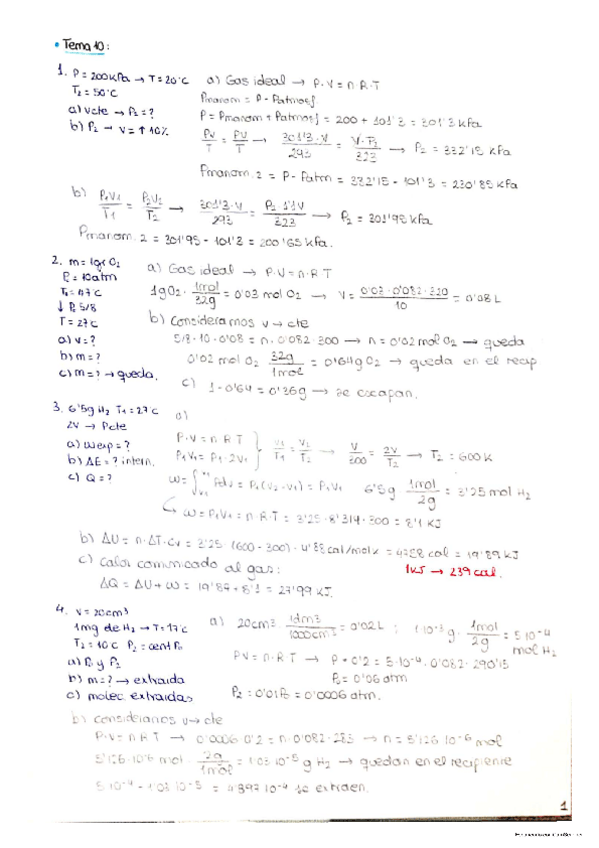 • Tema 10:
1. P = 200 kPa → T = 20°C
T2 = 50°C
a) Vcte → P2 = ?
b) P2 → V = ↑ 10%
a) Gas ideal → P·V = n·R·T
Pmanom = P - Patmosf
P = Pmanom + Patmosf = 200 + 101'3 = 301'3 kPa
PV/T = PV/T → 301'3·V/293 = V·P2/323 → P2 = 332'15 kPa
Pmanom. 2 = P - Patm = 332'15 - 101'3 = 230'85 kPa
b) P1V1/T1 = P2V2/T2 → 301'3·V/293 = P2·1'1V/323 → P2 = 301'95 kPa
Pmanom. 2 = 301'95 - 101'3 = 200'65 kPa.
2. m = 1gr O2
P = 10atm
T1 = 47°C
↓ P, 5/8
T = 27°C
a) V = ?
b) m = ?
c) m = ? → queda.
a) Gas ideal → P·V = n·R·T
1g O2 · 1mol/32g = 0'03 mol O2 → V = 0'03·0'082·320/10 = 0'08 L
b) Consideramos V → cte
5/8·10·0'08 = n·0'082·300 → n = 0'02 mol O2 → queda
0'02 mol O2 32g/1mol = 0'64g O2 → queda en el recip
c) 1 - 0'64 = 0'36g → se escapan.
3. 6'5g H2 T1 = 27°C
2V → Pcte
a) Wexp = ?
b) ΔE = ? intern.
c) Q = ?
a)
P·V = n·R·T
P1V1 = P1·2V1 } V1/T1 = V2/T2 → V/300 = 2V/T2 → T2 = 600K
= P1(V2-V1) = P1V1 6'5g 1mol/2g = 3'25 mol H2
↳ W = P1V1 = n·R·T = 3'25·8'314·300 = 8'1 KJ
b) ΔU = n·ΔT·Cv = 3'25·(600-300)·4'88 cal/molK = 4758 cal = 19'89 KJ
c) Calor comunicado al gas:
1KJ → 239 cal.
ΔQ = ΔU + W = 19'89 + 8'1 = 27'99 KJ.
4. V = 20cm³
1mg de H2 → T = 17°C
T2 = 10°C
a) P1 y P2
b) m = ? → extraida
c) molec extraidas
a) 20cm³ · 1dm³/1000cm³ = 0'02 L ; 1·10⁻³g · 1mol/2g = 5·10⁻⁴ mol H2
PV = n·R·T → P·0'2 = 5·10⁻⁴·0'082·290'15
P1 = 0'06 atm
P2 = 0'01P1 = 0'0006 atm.
b) Consideramos V → cte
P·V = n·R·T → 0'0006·0'2 = n·0'082·283 → n = 5'176·10⁻⁶ mol
5'176·10⁻⁶ mol · 2g/1mol = 1'03·10⁻⁵ g H2 → quedan en el recipiente
5·10⁻⁴ - 1'03·10⁻⁵ = 4'897·10⁻⁴ se extraen.
1